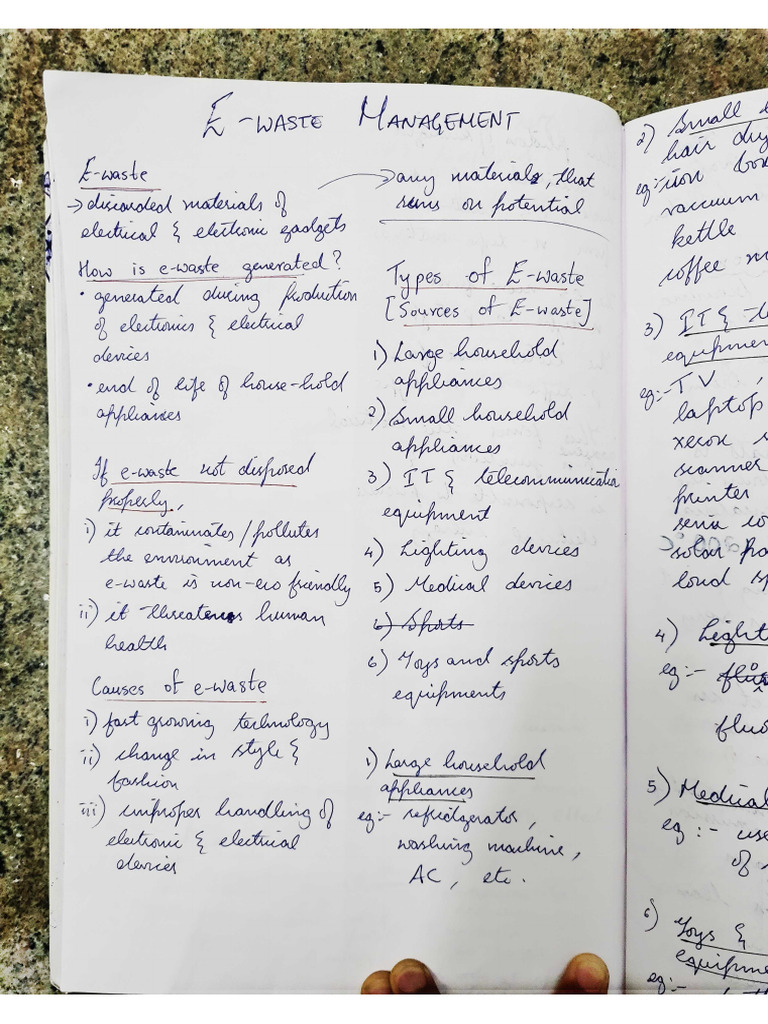 E-WASTE MANAGEMENT
E-waste
→ discarded materials of
electrical & electronic gadgets
How is e-waste generated?
• generated during production
of electronics & electrical
devices
• end of life of house-hold
appliances
If e-waste not disposed
properly,
i) it contaminates/pollutes
the environment as
e-waste is non-eco friendly
ii) it threatens human
health
Causes of e-waste
i) fast growing technology
ii) change in style &
fashion
iii) improper handling of
electronic & electrical
devices
→ any materials, that
runs on potential
Types of E-waste
[Sources of E-waste]
1) Large household
appliances
2) Small household
appliances
3) IT & telecommunicatio
equipment
4) Lighting devices
5) Medical devices
6) Sports
6) Toys and sports
equipments
1) Large household
appliances
eg:- refridgerator,
washing machine,
AC, etc.
2) Small
hair dry
eg:- iron box
vacuum
kettle
coffee m
3) IT &
equipmen
eg:- TV,
laptop
xerox
scanner
printer
solar
loud sp
4) Light
eg:-
fluo
5) Medical
eg:- use
of
6) Toys &
equipme
eg:-